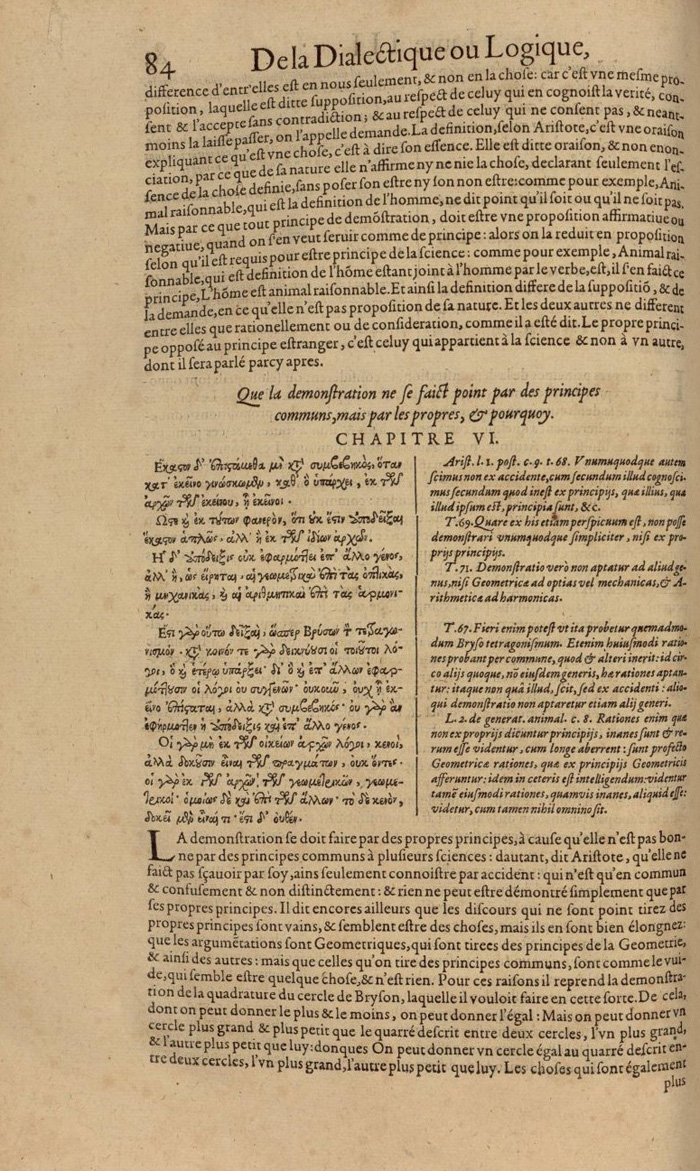 84 De la Dialectique ou Logique,
difference d'entr'elles eſt en nous ſeulement, & non en la choſe: car c'eſt vne meſme pro-
poſition, laquelle eſt ditte ſuppoſition, au reſpect de celuy qui en cognoiſt la verité, con-
ſent & l'accepte ſans contradiction; & au reſpect de celuy qui ne conſent pas, & neant-
moins la laiſſe paſſer, on l'appelle demande. La definition, ſelon Ariſtote, c'eſt vne oraiſon
expliquant ce qu'eſt vne choſe, c'eſt à dire ſon eſſence. Elle eſt ditte oraiſon, & non enon-
ciation, par ce que de ſa nature elle n'affirme ny ne nie la choſe, declarant ſeulement l'eſ-
ſence de la choſe definie, ſans poſer ſon eſtre ny ſon non eſtre: comme pour exemple, Ani-
mal raiſonnable, qui eſt la definition de l'homme, ne dit point qu'il ſoit ou qu'il ne ſoit pas.
Mais par ce que tout principe de demõſtration, doit eſtre vne propoſition affirmatiue ou
negatiue, quand on ſ'en veut ſeruir comme de principe: alors on la reduit en propoſition
ſelon qu'il eſt requis pour eſtre principe de la ſcience: comme pour exemple, Animal rai-
ſonnable, qui eſt definition de l'hõme eſtant joint à l'homme par le verbe, eſt, il ſ'en faict ce
principe, L'hõme eſt animal raiſonnable. Et ainſi la definition differe de la ſuppoſitiõ, & de
la demande, en ce qu'elle n'eſt pas propoſition de ſa nature. Et les deux autres ne different
entre elles que rationellement ou de conſideration, comme il a eſté dit. Le propre princi-
pe oppoſé au principe eſtranger, c'eſt celuy qui appartient à la ſcience & non à vn autre,
dont il ſera parlé par cy apres.
Que la demonſtration ne ſe faict point par des principes
communs, mais par les propres, & pourquoy.
CHAPITRE VI.
Ἕκαστον δ' ἐπιστάμεθα μὴ κτ' συμβεβηκὸς, ὅταν
κατ' ἐκεῖνο γινώσκωμεν, καθ' ὃ ὑπάρχει, ἐκ τῶν
ἀρχῶν τῶν ἐκείνου, ᾗ ἐκεῖνοι.
Ὥστε καὶ ἐκ τούτων φανερὸν, ὅτι οὐκ ἔστιν ἀποδεῖξαι
ἕκαστον ἁπλῶς, ἀλλ' ἢ ἐκ τῶν ἰδίων ἀρχῶν.
Ἡ δ' ἀπόδειξις οὐκ ἐφαρμόττει ἐπ' ἄλλο γένος,
ἀλλ' ἢ, ὡς εἴρηται, αἱ γεωμετρικαὶ ἐπὶ τὰς ὀπτικὰς,
ἢ μηχανικὰς, καὶ αἱ ἀριθμητικαὶ ἐπὶ τὰς ἁρμονι-
κάς.
Ἔστι γὰρ οὕτω δεῖξαι, ὥσπερ Βρύσων τὸν τετραγω-
νισμόν. κτ' κοινόν τε γὰρ δεικνύουσι οἱ τοιοῦτοι λό-
γοι, ὃ καὶ ἑτέρῳ ὑπάρξει· δι' ὃ καὶ ἐπ' ἄλλων ἐφαρ-
μόττουσιν οἱ λόγοι οὐ συγγενῶν· οὐκοῦν, οὐχ ᾗ ἐκ-
εῖνο ἐπίσταται, ἀλλὰ κτ' συμβεβηκός· οὐ γὰρ ἂν
ἐφήρμοττεν ἡ ἀπόδειξις καὶ ἐπ' ἄλλο γένος.
Οἱ γὰρ μὴ ἐκ τῶν οἰκείων ἀρχῶν λόγοι, κενοὶ,
ἀλλὰ δοκοῦσιν εἶναι τῶν πραγμάτων, οὐκ ὄντες·
οἱ γὰρ ἐκ τῶν ἀρχῶν τῶν γεωμετρικῶν, γεωμε-
τρικοί· ὁμοίως δὲ καὶ ἐπὶ τῶν ἄλλων· τὸ δὲ κενὸν,
δοκεῖ μὲν εἶναί τι· ἔστι δ' οὐθέν.
Ariſt. l. 1. poſt. c. 9. t. 68. Vnumquodque autem
ſcimus non ex accidente, cum ſecundum illud cognoſci-
mus ſecundum quod ineſt ex principijs, quæ illius, qua
illud ipſum eſt, principia ſunt, &c.
T. 69. Quare ex his etiam perſpicuum eſt, non poſſe
demonſtrari vnumquodque ſimpliciter, niſi ex pro-
prijs principijs.
T. 71. Demonſtratio verò non aptatur ad aliud ge-
nus, niſi Geometricæ ad optias vel mechanicas, & A-
rithmeticæ ad harmonicas.
T. 67. Fieri enim poteſt vt ita probetur quemadmo-
dum Bryſo tetragoniſmum. Etenim huiuſmodi ratio-
nes probant per commune, quod & alteri inerit: id cir-
co alijs quoque, nõ eiuſdem generis, hæ rationes aptan-
tur: itaque non quà illud, ſcit, ſed ex accidenti: alio-
qui demonſtratio non aptaretur etiam alij generi.
L. 2. de generat. animal. c. 8. Rationes enim quæ
non ex proprijs dicuntur principijs, inanes ſunt & re-
rum eſſe videntur, cum longe aberrent: ſunt profecto
Geometricæ rationes, quæ ex principijs Geometricis
afferuntur: idem in ceteris eſt intelligendum: videntur
tamẽ eiuſmodi rationes, quamvis inanes, aliquid eſſe:
videtur, cum tamen nihil omnino ſit.
LA demonſtration ſe doit faire par des propres principes, à cauſe qu'elle n'eſt pas bon-
ne par des principes communs à pluſieurs ſciences: dautant, dit Ariſtote, qu'elle ne
faict pas ſçauoir par ſoy, ains ſeulement connoiſtre par accident: qui n'eſt qu'en commun
& confuſement & non diſtinctement: & rien ne peut eſtre démontré ſimplement que par
ſes propres principes. Il dit encores ailleurs que les diſcours qui ne ſont point tirez des
propres principes ſont vains, & ſemblent eſtre des choſes, mais ils en ſont bien élongnez:
que les argumẽtations ſont Geometriques, qui ſont tirees des principes de la Geometrie,
& ainſi des autres: mais que celles qu'on tire des principes communs, ſont comme le vui-
de, qui ſemble eſtre quelque choſe, & n'eſt rien. Pour ces raiſons il reprend la demonſtra-
tion de la quadrature du cercle de Bryſon, laquelle il vouloit faire en cette ſorte. De cela,
dont on peut donner le plus & le moins, on peut donner l'égal: Mais on peut donner vn
cercle plus grand & plus petit que le quarré deſcrit entre deux cercles, l'vn plus grand,
& l'autre plus petit que luy: donques On peut donner vn cercle égal au quarré deſcrit en-
tre deux cercles, l'vn plus grand, l'autre plus petit que luy. Les choſes qui ſont également
plus